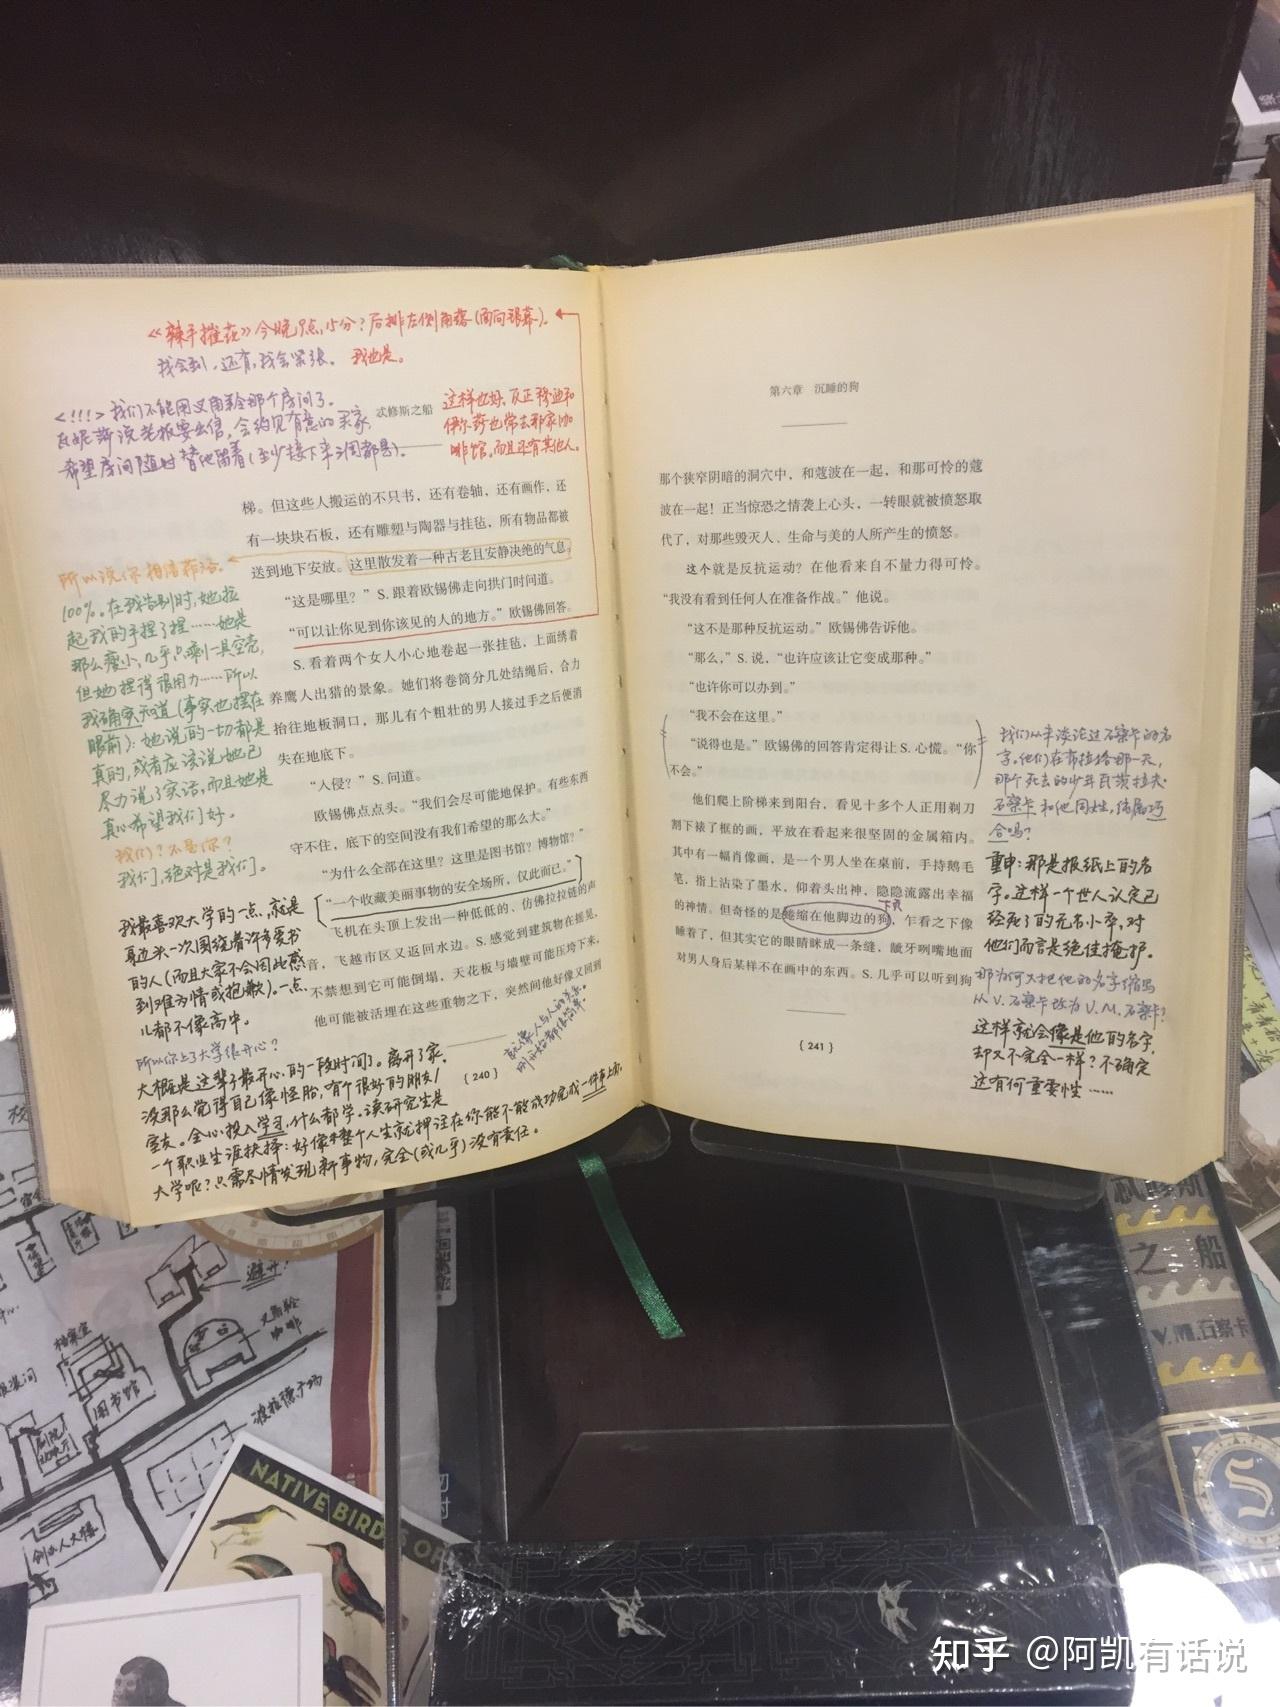 《辣手摧花》今晚9点15分？后排左侧角落（面向银幕）。
我会到，还有，我会紧张。 我也是。
<!!!> 我们不能用叉角羚那个房间了。
瓦妮莎说老板要出售，会约见有意的买家，
希望房间随时替他留着（至少接下来三周都是）。
忒修斯之船
这样也好，反正穆迪和
伊尔莎也常去那家咖
啡馆。而且还有其他人。
梯。但这些人搬运的不只书，还有卷轴，还有画作，还
有一块块石板，还有雕塑与陶器与挂毯，所有物品都被
送到地下安放。这里散发着一种古老且安静决绝的气息。
“这是哪里？”S.跟着欧锡佛走向拱门时问道。
“可以让你见到你该见的人的地方。”欧锡佛回答。
S.看着两个女人小心地卷起一张挂毯，上面绣着
养鹰人出猎的景象。她们将卷筒分几处结绳后，合力
抬往地板洞口，那儿有个粗壮的男人接过手之后便消
失在地底下。
“入侵？”S.问道。
欧锡佛点点头。“我们会尽可能地保护。有些东西
守不住，底下的空间没有我们希望的那么大。”
“为什么全部在这里？这里是图书馆？博物馆？”
“一个收藏美丽事物的安全场所，仅此而已。”
飞机在头顶上发出一种低低的、仿佛拉拉链的声
音，飞越市区又返回水边。S.感觉到建筑物在摇晃，
不禁想到它可能倒塌，天花板与墙壁可能压垮下来，
他可能被活埋在这些重物之下，突然间他好像又回到
{ 240 }
所以说你相信莎洛。
100%。在我告别时，她拉
起我的手捏了捏……她是
那么瘦小，几乎只剩一具空壳，
但她捏得很用力……所以
我确实知道（事实也摆在
眼前）：她说的一切都是
真的，或者应该说她已
尽力说了实话，而且她是
真心希望我们好。
我们？不是你？
我们，绝对是我们。
我最喜欢大学的一点，就是
身边头一次围绕着许多爱书
的人（而且大家不会因此感
到难为情或抱歉）。一点
儿都不像高中。
所以你上了大学很开心？
大概是这辈子最开心的一段时间了。离开了家，
没那么觉得自己像怪胎，有个很好的朋友/
室友。全心投入学习，什么都学。读研究生是
一个职业生涯抉择：好像整个人生就押注在你能不能成功完成一件事上面，
大学呢？只需尽情发现新事物，完全（或几乎）没有责任。
就像人与人的关系。
刚开始都很简单。
第六章 沉睡的狗
那个狭窄阴暗的洞穴中，和蔻波在一起，和那可怜的蔻
波在一起！正当惊恐之情袭上心头，一转眼就被愤怒取
代了，对那些毁灭人、生命与美的人所产生的愤怒。
这个就是反抗运动？在他看来自不量力得可怜。
“我没有看到任何人在准备作战。”他说。
“这不是那种反抗运动。”欧锡佛告诉他。
“那么，”S.说，“也许应该让它变成那种。”
“也许你可以办到。”
“我不会在这里。”
“说得也是。”欧锡佛的回答肯定得让S.心慌。“你
不会。”
他们爬上阶梯来到阳台，看见十多个人正用剃刀
割下裱了框的画，平放在看起来很坚固的金属箱内。
其中有一幅肖像画，是一个男人坐在桌前，手持鹅毛
笔，指上沾染了墨水，仰着头出神，隐隐流露出幸福
的神情。但奇怪的是蜷缩在他脚边的狗，乍看之下像
睡着了，但其实它的眼睛眯成一条缝，龇牙咧嘴地面
对男人身后某样不在画中的东西。S.几乎可以听到狗
{ 241 }
我们从未谈论过石察卡的名
字。他们在布拉格那一天，
那个死去的少年瓦茨拉夫·
石察卡和他同姓，纯属巧
合吗？
重申：那是报纸上的名
字。这样一个世人认定已
经死了的无名小卒，对
他们而言是绝佳掩护。
那为何又把他的名字缩写
从V.石察卡改为V.M.石察卡？
这样就会像是他的名字，
却又不完全一样？不确定
这有何重要性……
避开！
叉角羚
咖啡
档案室
图书馆
波拉德广场
创始人大楼
NATIVE BIRDS OF
忒修斯
之船
V.M.石察卡
S
知乎 @阿凯有话说